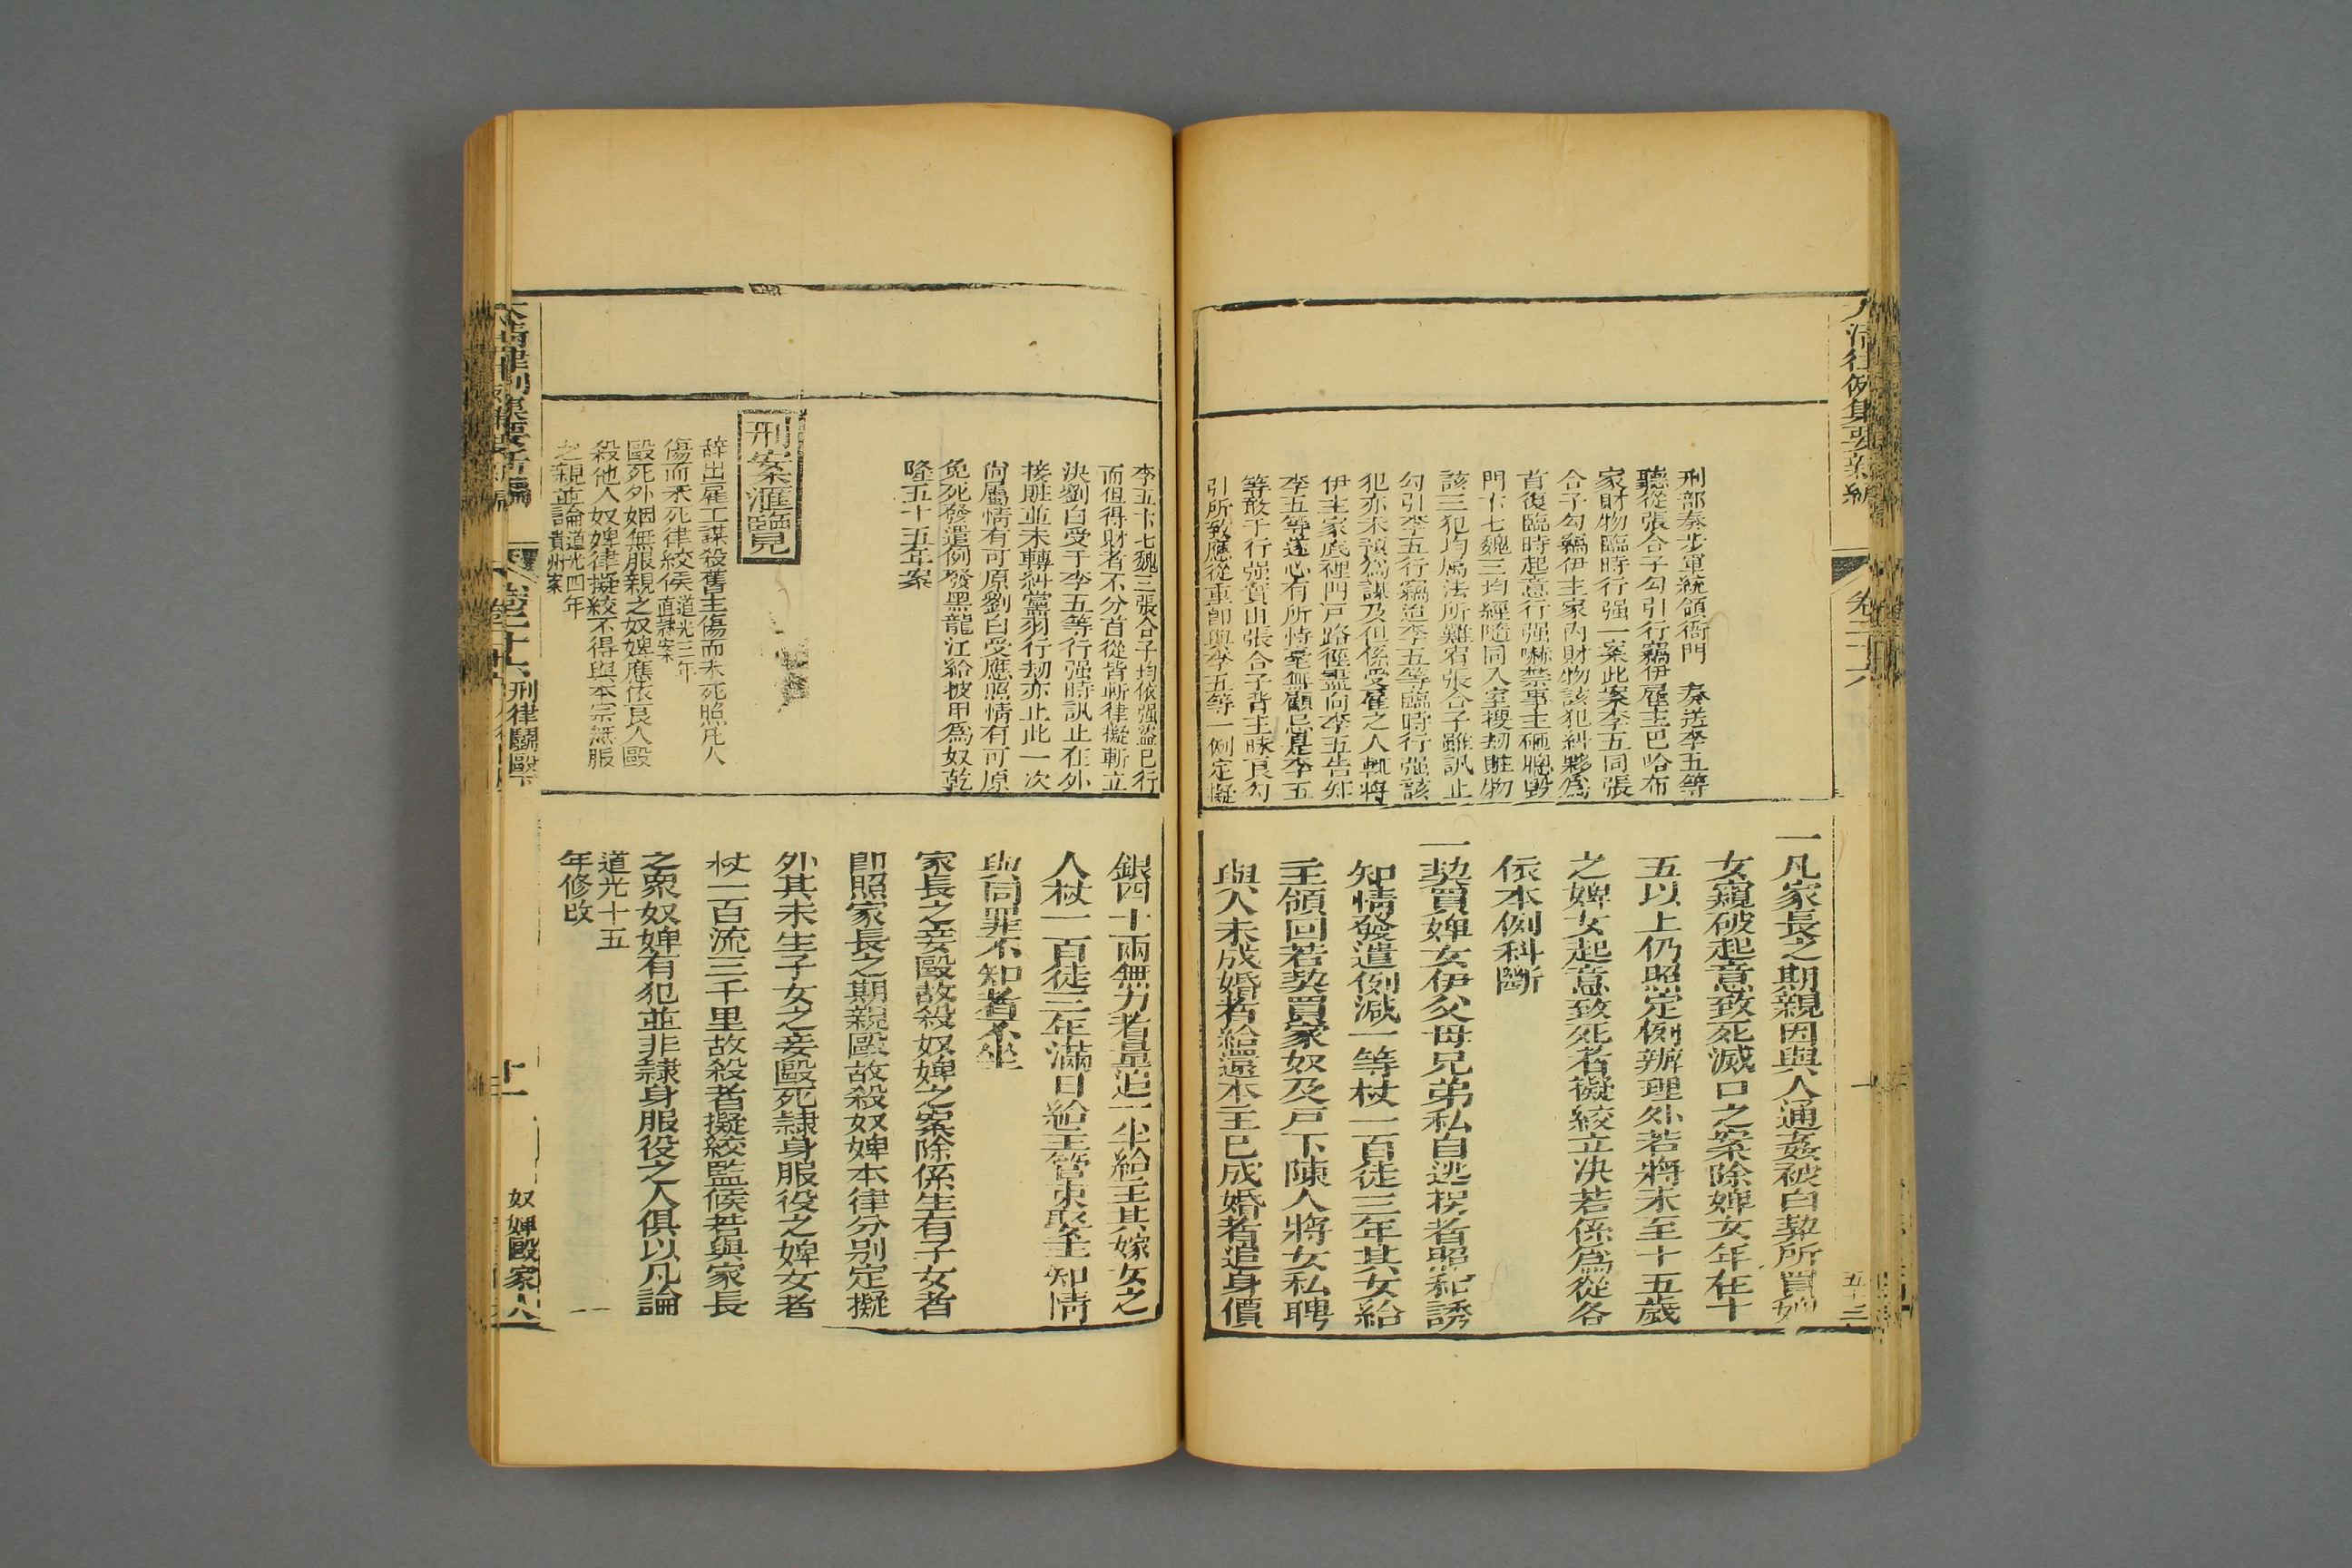 大清律例集要新編
卷三十六
五十三
刑部奏步軍統領衙門 奏送李五等
聽從張合子勾引行竊伊雇主巴哈布
家財物臨時行强一案此案李五同張
合子勾竊伊主家內財物該犯糾夥爲
首復臨時起意行强嚇禁事主砸牕毀
門卞七魏三均經隨同入室搜刼賍物
該三犯均属法所難宥張合子雖訊止
勾引李五行竊迨李五等臨時行强該
犯亦未預爲謀及但係受雇之人輒將
伊主家底裡門戸路徑盡向李五告知
李五等遂心有所恃毫無顧忌是李五
等敢于行强實由張合子背主昧良勾
引所致應從重即與李五等一例定擬
一凡家長之期親因與人通姦被白契所買婢
女窺破起意致死滅口之案除婢女年在十
五以上仍照定例辦理外若將未至十五歲
之婢女起意致死者擬絞立决若係爲從各
依本例科斷
一契買婢女伊父母兄弟私自逃拐者照和誘
知情發遣例減一等杖一百徒三年其女給
主領回若契買家奴及戸下陳人將女私聘
與人未成婚者給還本主已成婚者追身價
李五卞七魏三張合子均依强盜已行
而但得財者不分首從皆斬律擬斬立
決劉白受于李五等行强時訊止在外
接賍並未轉糾黨羽行刼亦止此一次
尙屬情有可原劉白受應照情有可原
免死發遣例發黑龍江給披甲爲奴乾
隆五十五年案
刑案滙覽
辞出雇工謀殺舊主傷而未死照凡人
傷而未死律絞候道光三年直隸案
毆死外姻無服親之奴婢應依良人毆
殺他人奴婢律擬絞不得與本宗無服
之親並論道光四年貴州案
銀四十兩無力者量追一半給主其嫁女之
人杖一百徒三年滿日給主管束娶主知情
與同罪不知者不坐
家長之妾毆故殺奴婢之案除係生有子女者
即照家長之期親毆故殺奴婢本律分别定擬
外其未生子女之妾毆死隷身服役之婢女者
杖一百流三千里故殺者擬絞監候若與家長
之衆奴婢有犯並非隷身服役之人俱以凡論
道光十五
年修改
大清律例集要新編
卷二十六
刑律鬬毆下
十一
奴婢毆家人